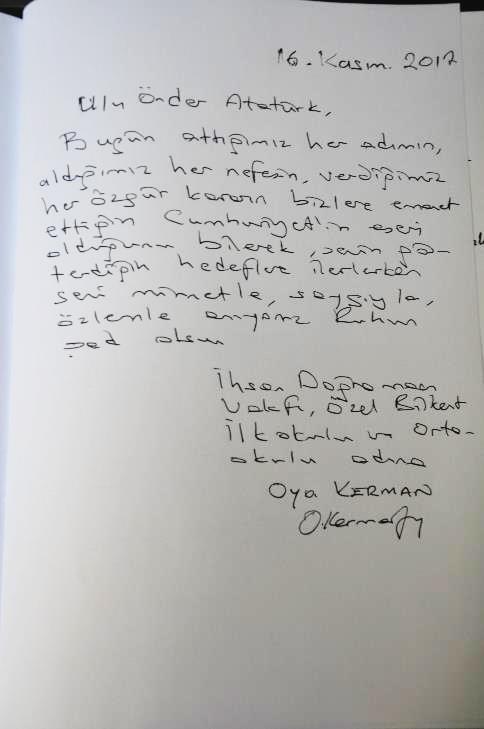 16. Kasım. 2017
Ulu Önder Atatürk,
Bugün attığımız her adımın,
aldığımız her nefesin, verdiğimiz
her özgür kararın bizlere emanet
ettiğin Cumhuriyet'in eseri
olduğunu bilerek, senin gös-
terdiğin hedeflere ilerlerken
seni minnetle, saygıyla,
özlemle anıyoruz Ruhun
şad olsun
İhsan Doğramacı
Vakfı, Özel Bilkent
İlkokulu ve Orta-
okulu adına
Oya KERMAN
O.Kerman